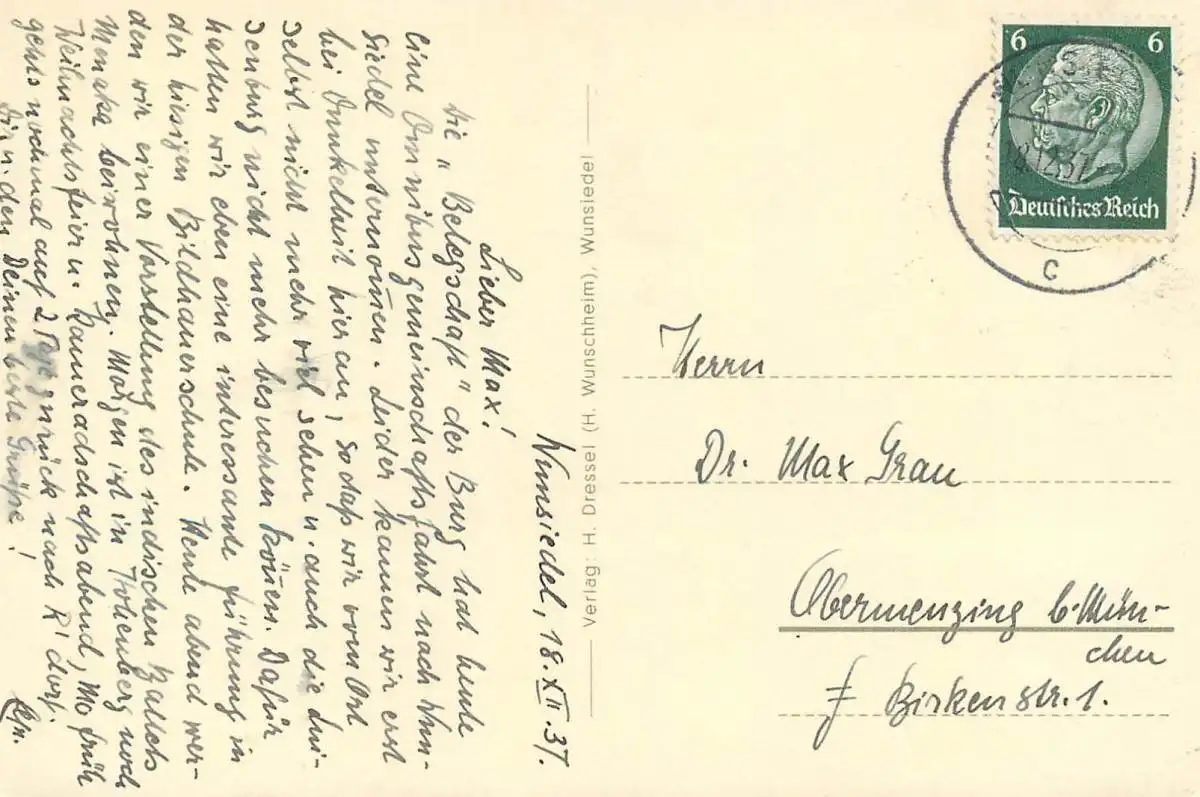 Wunsiedel, 18.XII.37.
Lieber Max!
Die „Belegschaft" der Burg hat heute
eine Omnibusgemeinschaftsfahrt nach Wun-
siedel unternom̄en. Leider kamen wir erst
bei Dunkelheit hier an, sodaß wir vom Ort
selbst nicht mehr viel sehen u. auch die Lui-
senburg nicht mehr besuchen kön̄en. Dafür
hatten wir eben eine interessante Führung in
der hiesigen Bildhauerschule. Heute abend wer-
den wir einer Vorstellung des indischen Ballets
Menaka beiwohnen. Morgen ist in Hohenberg noch
Weihnachtsfeier u. Kameradschaftsabend, Mo früh
gehts nochmal auf 2 Tage zurück nach R'dorf.
Dir u. den Deinen beste Grüße!
Verlag: H. Dressel (H. Wunschheim), Wunsiedel
6 6
12.37
Deutsches Reich
c
Herrn
Dr. Max Grau
Obermenzing b. Mün-
chen
Birkenstr. 1.